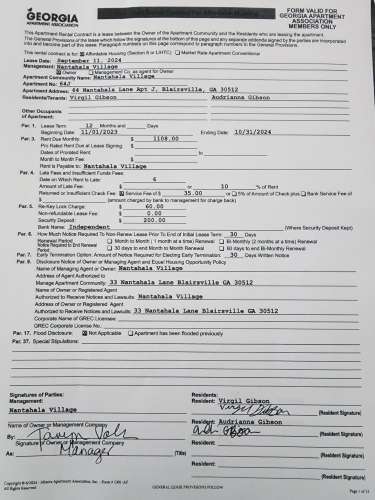 GEORGIA
APARTMENT
ASSOCIATION
FORM VALID FOR
GEORGIA APARTMENT
ASSOCIATION
MEMBERS ONLY
This Apartment Rental Contract is a lease between the Owner of the Apartment Community and the Residents who are leasing the apartment.
The General Provisions of the lease which follow the signatures at the bottom of this page and any separate addenda signed by the parties are incorporated
into and become part of this lease. Paragraph numbers on this page correspond to paragraph numbers in the General Provisions.
This rental contract is for: Affordable Housing (Section 8 or LIHTC) Market Rate Apartment Conventional
Lease Date: September 11, 2024
Management: Nantahala Village
Owner Management Co. as agent for Owner
Apartment Community Name: Nantahala Village
Apartment No: 64J
Apartment Address: 64 Nantahala Lane Apt J, Blairsville, GA 30512
Residents/Tenants: Virgil Gibson Audrianna Gibson
Other Occupants
of Apartment:
Par. 1. Lease Term: 12 Months and Days
Beginning Date: 11/01/2023 Ending Date: 10/31/2024
Par. 3. Rent Due Monthly: $ 1108.00
Pro Rated Rent Due at Lease Signing $
Dates of Prorated Rent to
Month to Month Fee: $
Rent is Payable to: Nantahala Village
Par. 4. Late Fees and Insufficient Funds Fees
Date on Which Rent Is Late: 6
Amount of Late Fee: $ or 10 % of Rent
Returned or Insufficient Check Fee: Service Fee of $ 35.00 or 5% of Amount of Check plus Bank Service Fee of
$ (amount charged by bank to management for charge back)
Par. 5. Re-Key Lock Charge: $ 60.00
Non-refundable Lease Fee: $ 0.00
Security Deposit: $ 200.00
Bank Name: Independent (Where Security Deposit Kept)
Par. 6. How Much Notice Required To Non-Renew Lease Prior To End of Initial Lease Term: 30 Days
Renewal Period: Month to Month ( 1 month at a time) Renewal; Bi-Monthly (2 months at a time) Renewal
Notice Required to End Renewal
Period: 30 days to end Month to Month Renewal 60 days to end Bi-Monthly Renewal
Par. 7. Early Termination Option. Amount of Notice Required for Electing Early Termination: 30 Days Written Notice
Par. 9. Disclosure Notice of Owner or Managing Agent and Equal Housing Opportunity Policy
Name of Managing Agent or Owner: Nantahala Village
Address of Agent Authorized to
Manage Apartment Community: 33 Nantahala Lane Blairsville GA 30512
Name of Owner or Registered Agent
Authorized to Receive Notices and Lawsuits: Nantahala Village
Address of Owner or Registered Agent
Authorized to Receive Notices and Lawsuits: 33 Nantahala Lane Blairsville GA 30512
Corporate Name of GREC Licensee:
GREC Corporate License No.
Par. 17. Flood Disclosure: Not Applicable Apartment has been flooded previously
Par. 37. Special Stipulations:
Signatures of Parties:
Management:
Nantahala Village
Name of Owner or Management Company
By:
Signature of Owner or Management Company
As: Manager (Title)
Residents:
Resident: Virgil Gibson
Virgil Gibson (Resident Signature)
Resident: Audrianna Gibson
(Resident Signature)
(Resident Signature)
(Resident Signature)
GENERAL LEASE PROVISIONS FOLLOW
Page 1 of